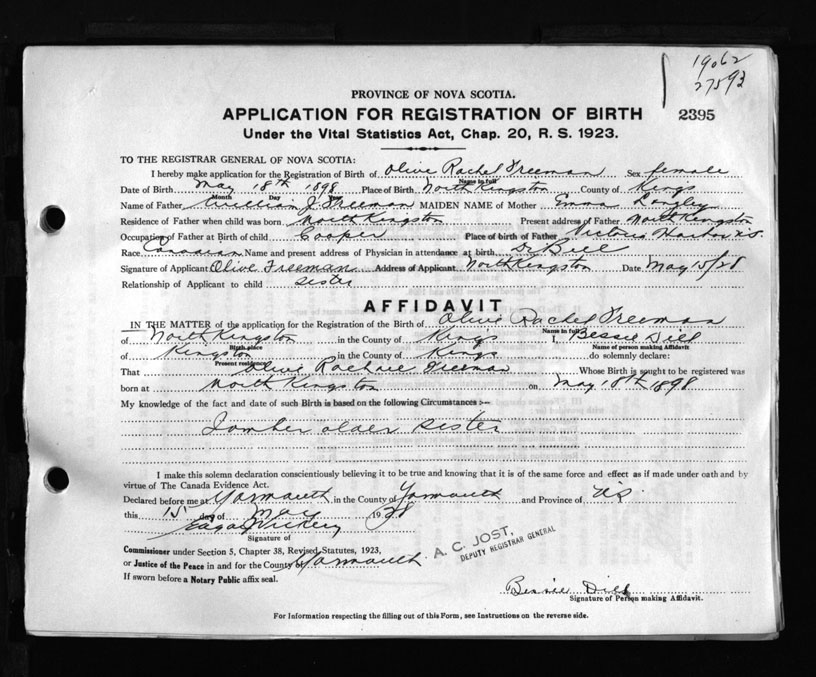 19062
27593
PROVINCE OF NOVA SCOTIA.
APPLICATION FOR REGISTRATION OF BIRTH
2395
Under the Vital Statistics Act, Chap. 20, R. S. 1923.
TO THE REGISTRAR GENERAL OF NOVA SCOTIA:
I hereby make application for the Registration of Birth of Olive Rachel Freeman Sex female
Name in full
Date of Birth May 18th 1898 Place of Birth North Kingston County of Kings
Month Day Year
Name of Father William J. Freeman MAIDEN NAME of Mother Emma Langley
Residence of Father when child was born North Kingston Present address of Father North Kingston
Occupation of Father at Birth of child Cooper Place of birth of Father Victoria Harbor N.S.
Race Canadian Name and present address of Physician in attendance at birth Dr
Signature of Applicant Olive Freeman Address of Applicant North Kingston Date May 15/28
Relationship of Applicant to child sister
AFFIDAVIT
IN THE MATTER of the application for the Registration of the Birth of Olive Rachel Freeman
Name in full
of North Kingston in the County of King's I, Bessie Dill
Birth place Name of person making Affidavit
of Kingston in the County of Kings do solemnly declare:
Present residence
That Olive Rachael Freeman Whose Birth is sought to be registered was
born at North Kingston on May 18th 1898
My knowledge of the fact and date of such Birth is based on the following Circumstances :—
I am her older sister
I make this solemn declaration conscientiously believing it to be true and knowing that it is of the same force and effect as if made under oath and by
virtue of The Canada Evidence Act.
Declared before me at Yarmouth in the County of Yarmouth and Province of N.S.
this 15 day of May 1928
Signature of
Commissioner under Section 5, Chapter 38, Revised Statutes, 1923,
or Justice of the Peace in and for the County of Yarmouth
If sworn before a Notary Public affix seal.
A. C. JOST,
DEPUTY REGISTRAR GENERAL
Bessie Dill
Signature of Person making Affidavit.
For Information respecting the filling out of this Form, see Instructions on the reverse side.